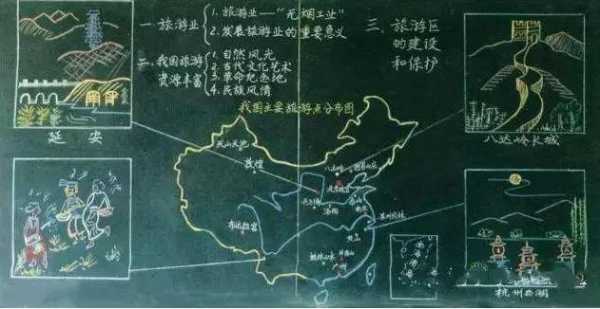 一、旅游业
1. 旅游业——"无烟工业"
2. 发展旅游业的重要意义
二、我国旅游资源丰富
1. 自然风光
2. 古代文化艺术
3. 革命纪念地
4. 民族风情
三、旅游区的建设和保护
我国主要旅游点分布图
延安
八达岭长城
杭州西湖
天山天池
敦煌
八达岭
布达拉宫
苏州园林
桂林山水